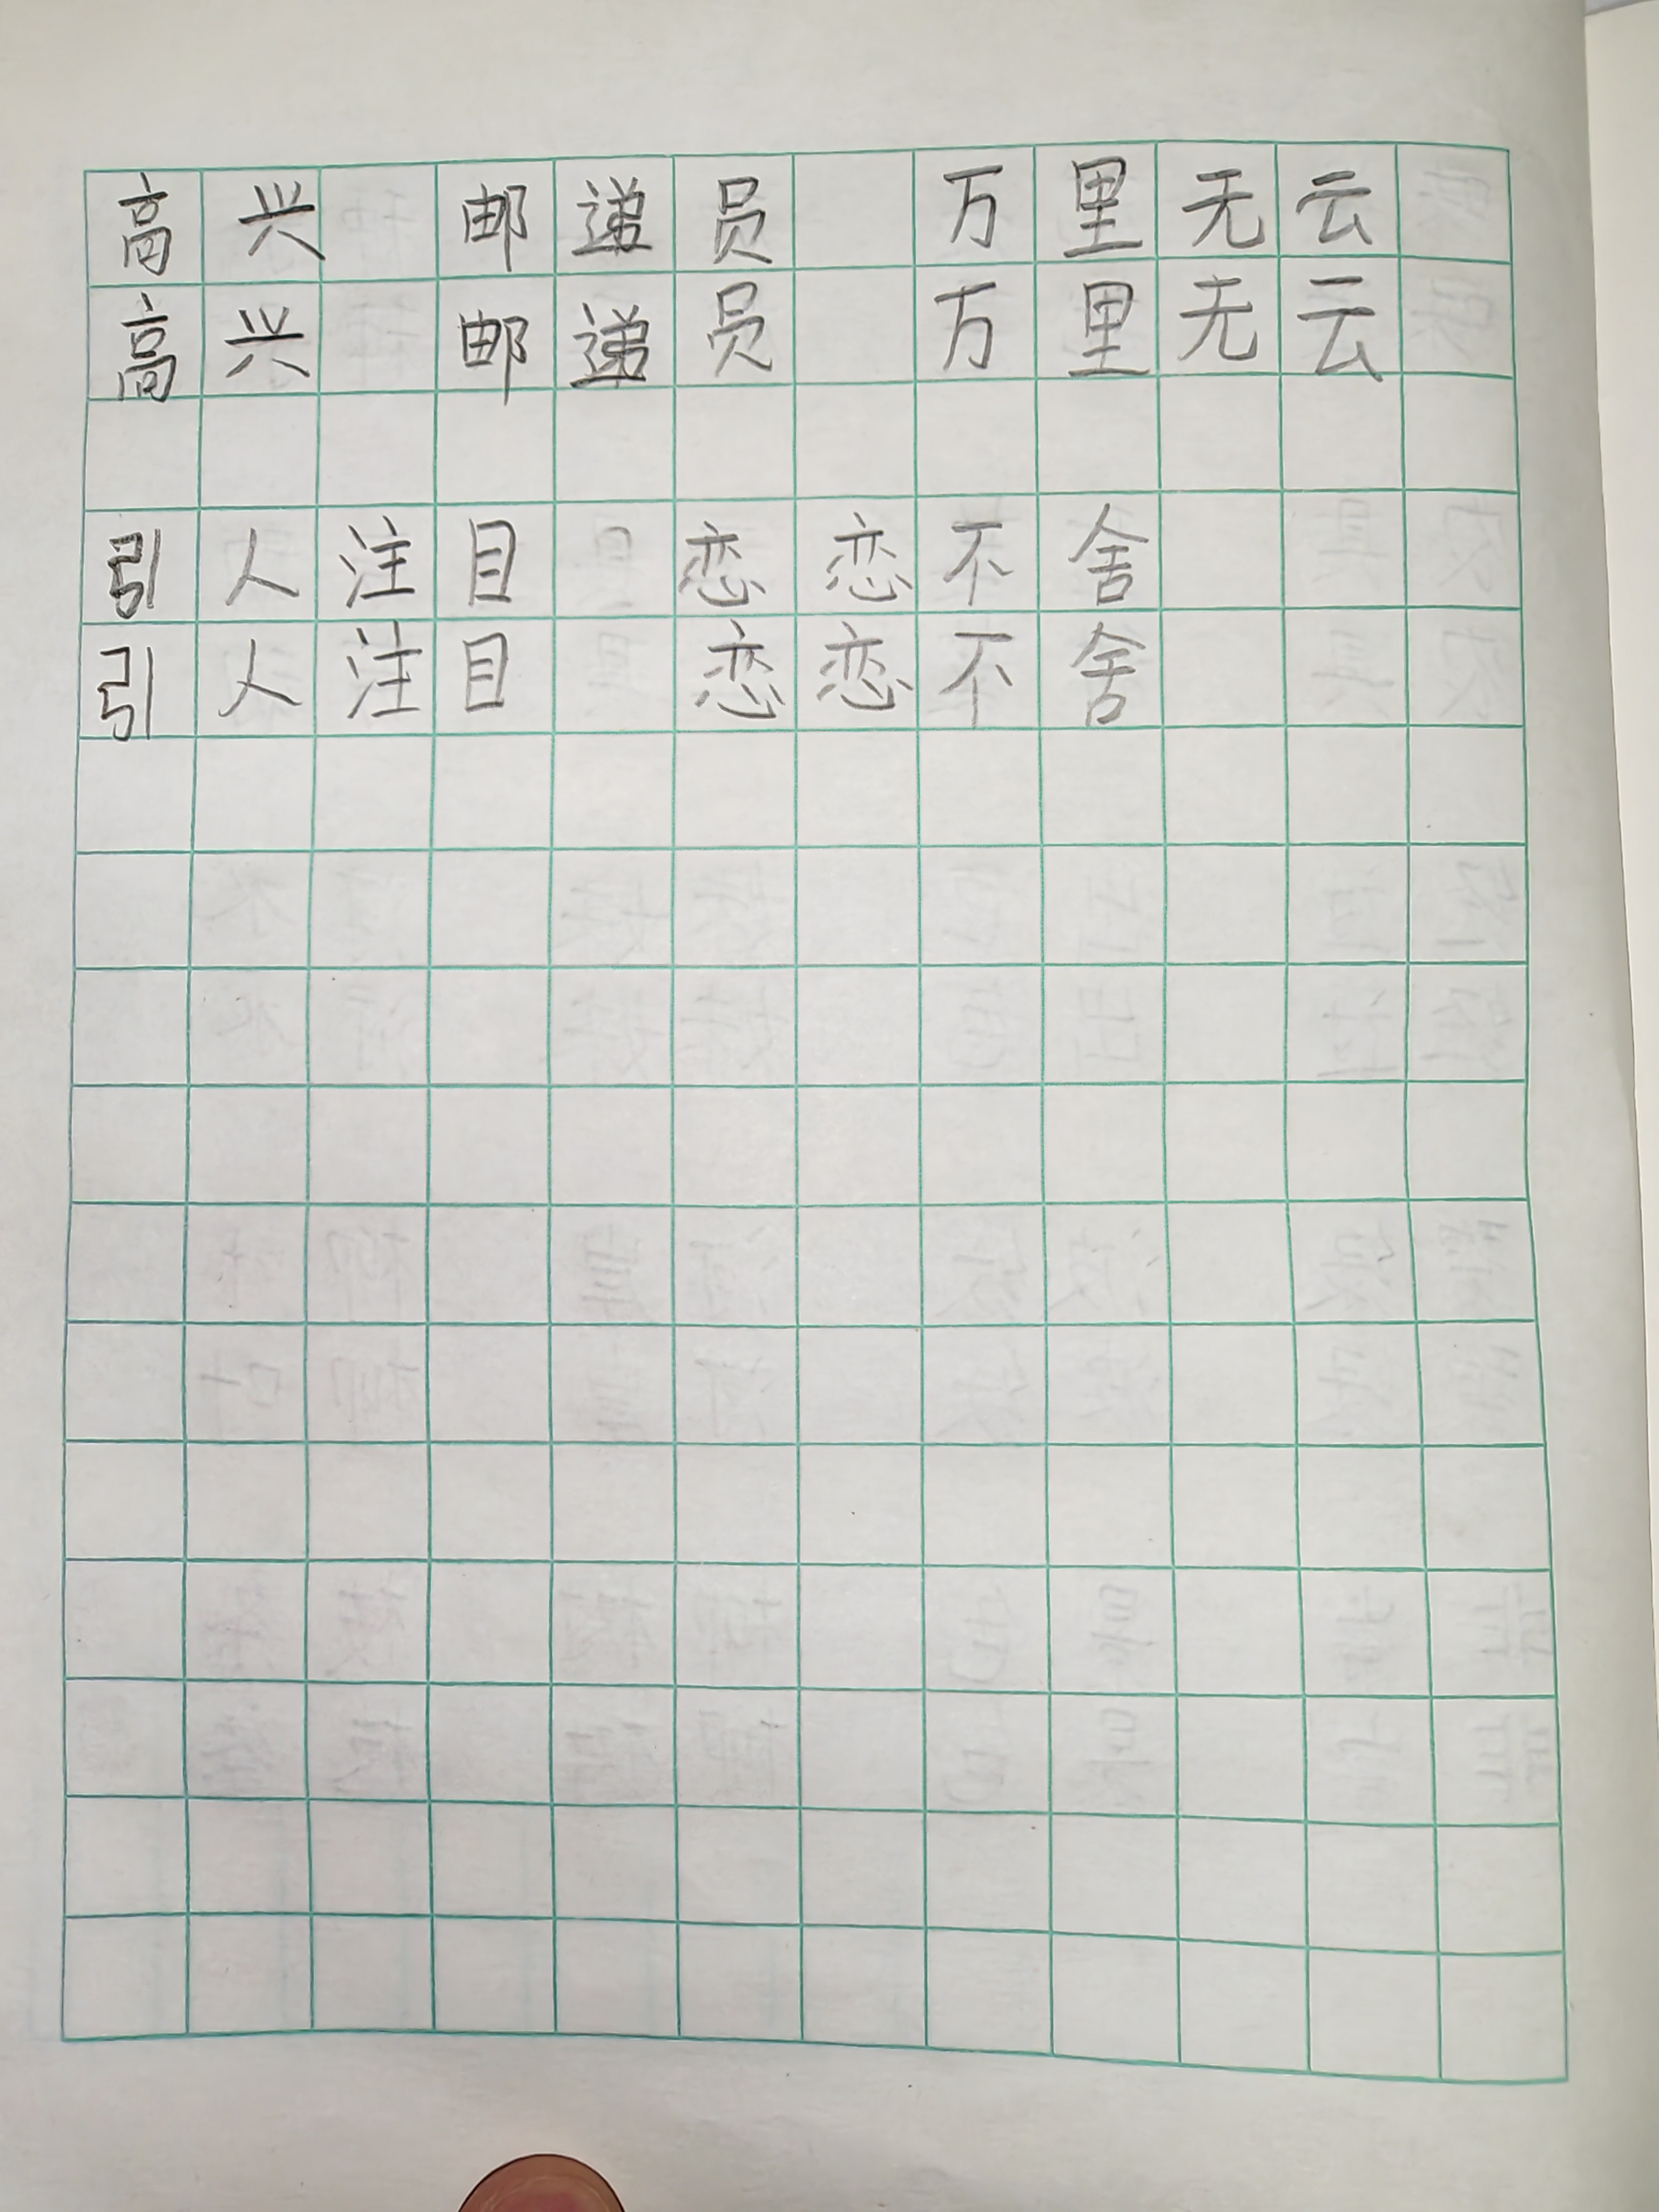 高兴 邮递员 万里无云
高兴 邮递员 万里无云
引人注目 恋恋不舍
引人注目 恋恋不舍